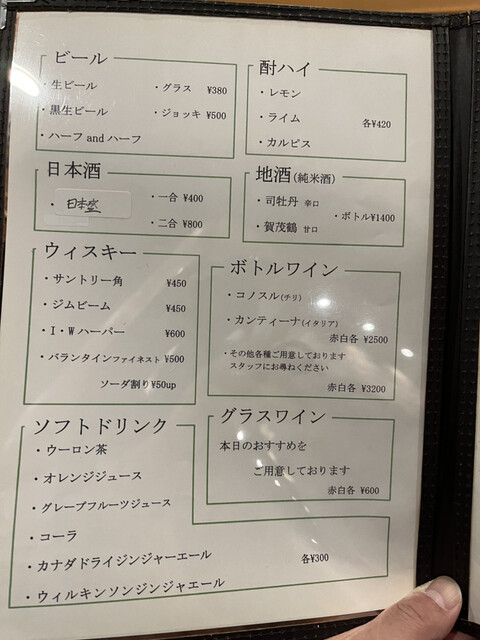 ビール
・生ビール ・グラス ¥380
・黒生ビール ・ジョッキ ¥500
・ハーフ and ハーフ
酎ハイ
・レモン
・ライム 各¥420
・カルピス
日本酒
・日本盛 ・一合 ¥400
・二合 ¥800
地酒(純米酒)
・司牡丹 辛口
・ボトル¥1400
・賀茂鶴 甘口
ウィスキー
・サントリー角 ¥450
・ジムビーム ¥450
・I・Wハーパー ¥600
・バランタインファイネスト ¥500
ソーダ割り ¥50up
ボトルワイン
・コノスル(チリ)
・カンティーナ(イタリア)
赤白各 ¥2500
・その他各種ご用意しております
スタッフにお尋ねください
赤白各 ¥3200
グラスワイン
本日のおすすめを
ご用意しております
赤白各 ¥600
ソフトドリンク
・ウーロン茶
・オレンジジュース
・グレープフルーツジュース
・コーラ
・カナダドライジンジャーエール 各¥300
・ウィルキンソンジンジャエール